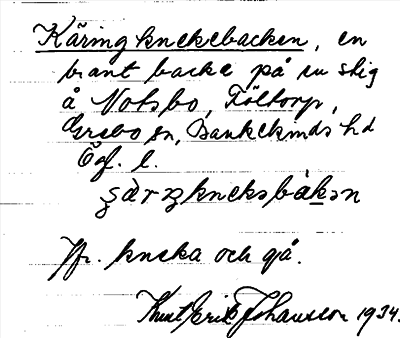 Käringknekebacken, en
brant backe på en stig
å Notsbo, Föltorp,
Grebo sn, Bankekinds hd
Ögl. l.
knekabàkən
Jfr. kneka och gå.
Knut Erik Johansson 1934.